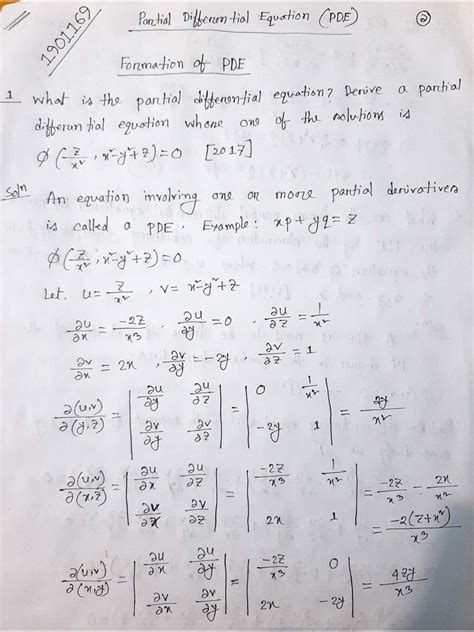 1901169
Partial Differential Equation (PDE)
2
Formation of PDE
1 What is the partial differential equation? Derive a partial
differential equation whose one of the solutions is
∅(z/x², x²-y²+z)=0 [2017]
Solⁿ An equation involving one or moore partial derivatives
is called a PDE. Example: xp+yq=z
∅(z/x², x²-y²+z)=0
Let, u=z/x², v=x²-y²+z
∂u/∂x = -2z/x³, ∂u/∂y = 0, ∂u/∂z = 1/x²
∂v/∂x = 2x, ∂v/∂y = -2y, ∂v/∂z = 1
∂(u,v)/∂(y,z) = |∂u/∂y ∂u/∂z; ∂v/∂y ∂v/∂z| = |0 1/x²; -2y 1| = 2y/x²
∂(u,v)/∂(x,z) = |∂u/∂x ∂u/∂z; ∂v/∂x ∂v/∂z| = |-2z/x³ 1/x²; 2x 1| = -2z/x³ - 2x/x²
= -2(z+x²)/x³
∂(u,v)/∂(x,y) = |∂u/∂x ∂u/∂y; ∂v/∂x ∂v/∂y| = |-2z/x³ 0; 2x -2y| = 4zy/x³